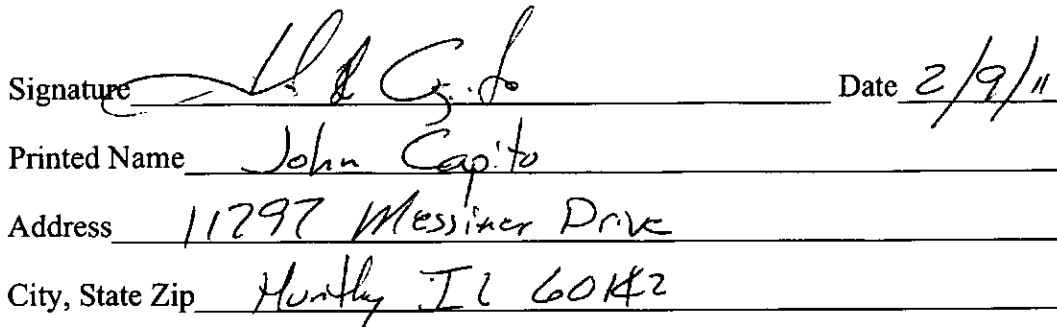 Signature Date 2/9/11
Printed Name John Capito
Address 11797 Messiner Drive
City, State Zip Huntley IL 60142